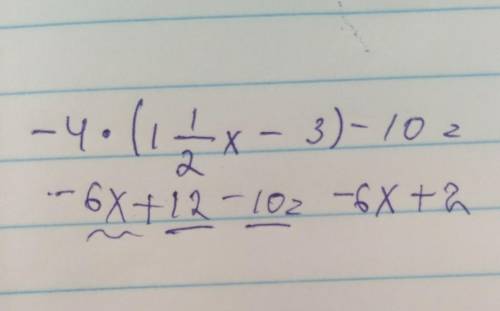 -4 · (1 1/2 x - 3) - 10 =
-6x + 12 - 10 = -6x + 2